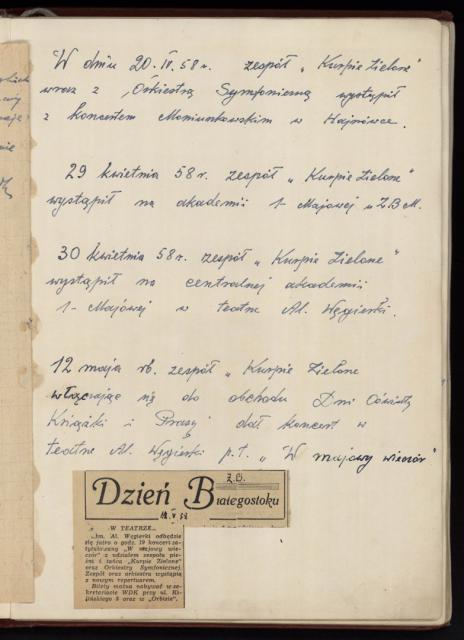 W dniu 20. IV. 58 r. zespół „Kurpie Zielone"
wraz z Orkiestrą Symfoniczną wystąpił
z koncertem Moniuszkowskim w Hajnówce.
29 kwietnia 58 r. zespół „Kurpie Zielone"
wystąpił na akademii 1-Majowej w Z.B.M.
30 kwietnia 58 r. zespół „Kurpie Zielone"
wystąpił na centralnej akademii
1-Majowej w teatrze Al. Węgierki.
12 maja rb. zespół „Kurpie Zielone
włączając się do obchodu Dni Oświaty
Książki i Prasy dał koncert w
teatrze Al. Węgierki p.t. „W majowy wieczór"
Dzień Białegostoku
W TEATRZE...
...im. Al. Węgierki odbędzie
się jutro o godz. 19 koncert za-
tytułowany „W majowy wie-
czór" z udziałem zespołu pie-
śni i tańca „Kurpie Zielone"
oraz Orkiestry Symfonicznej.
Zespół oraz orkiestra wystąpią
z nowym repertuarem.
Bilety można nabywać w se-
kretariacie WDK przy ul. Ki-
lińskiego 8 oraz w „Orbisie".